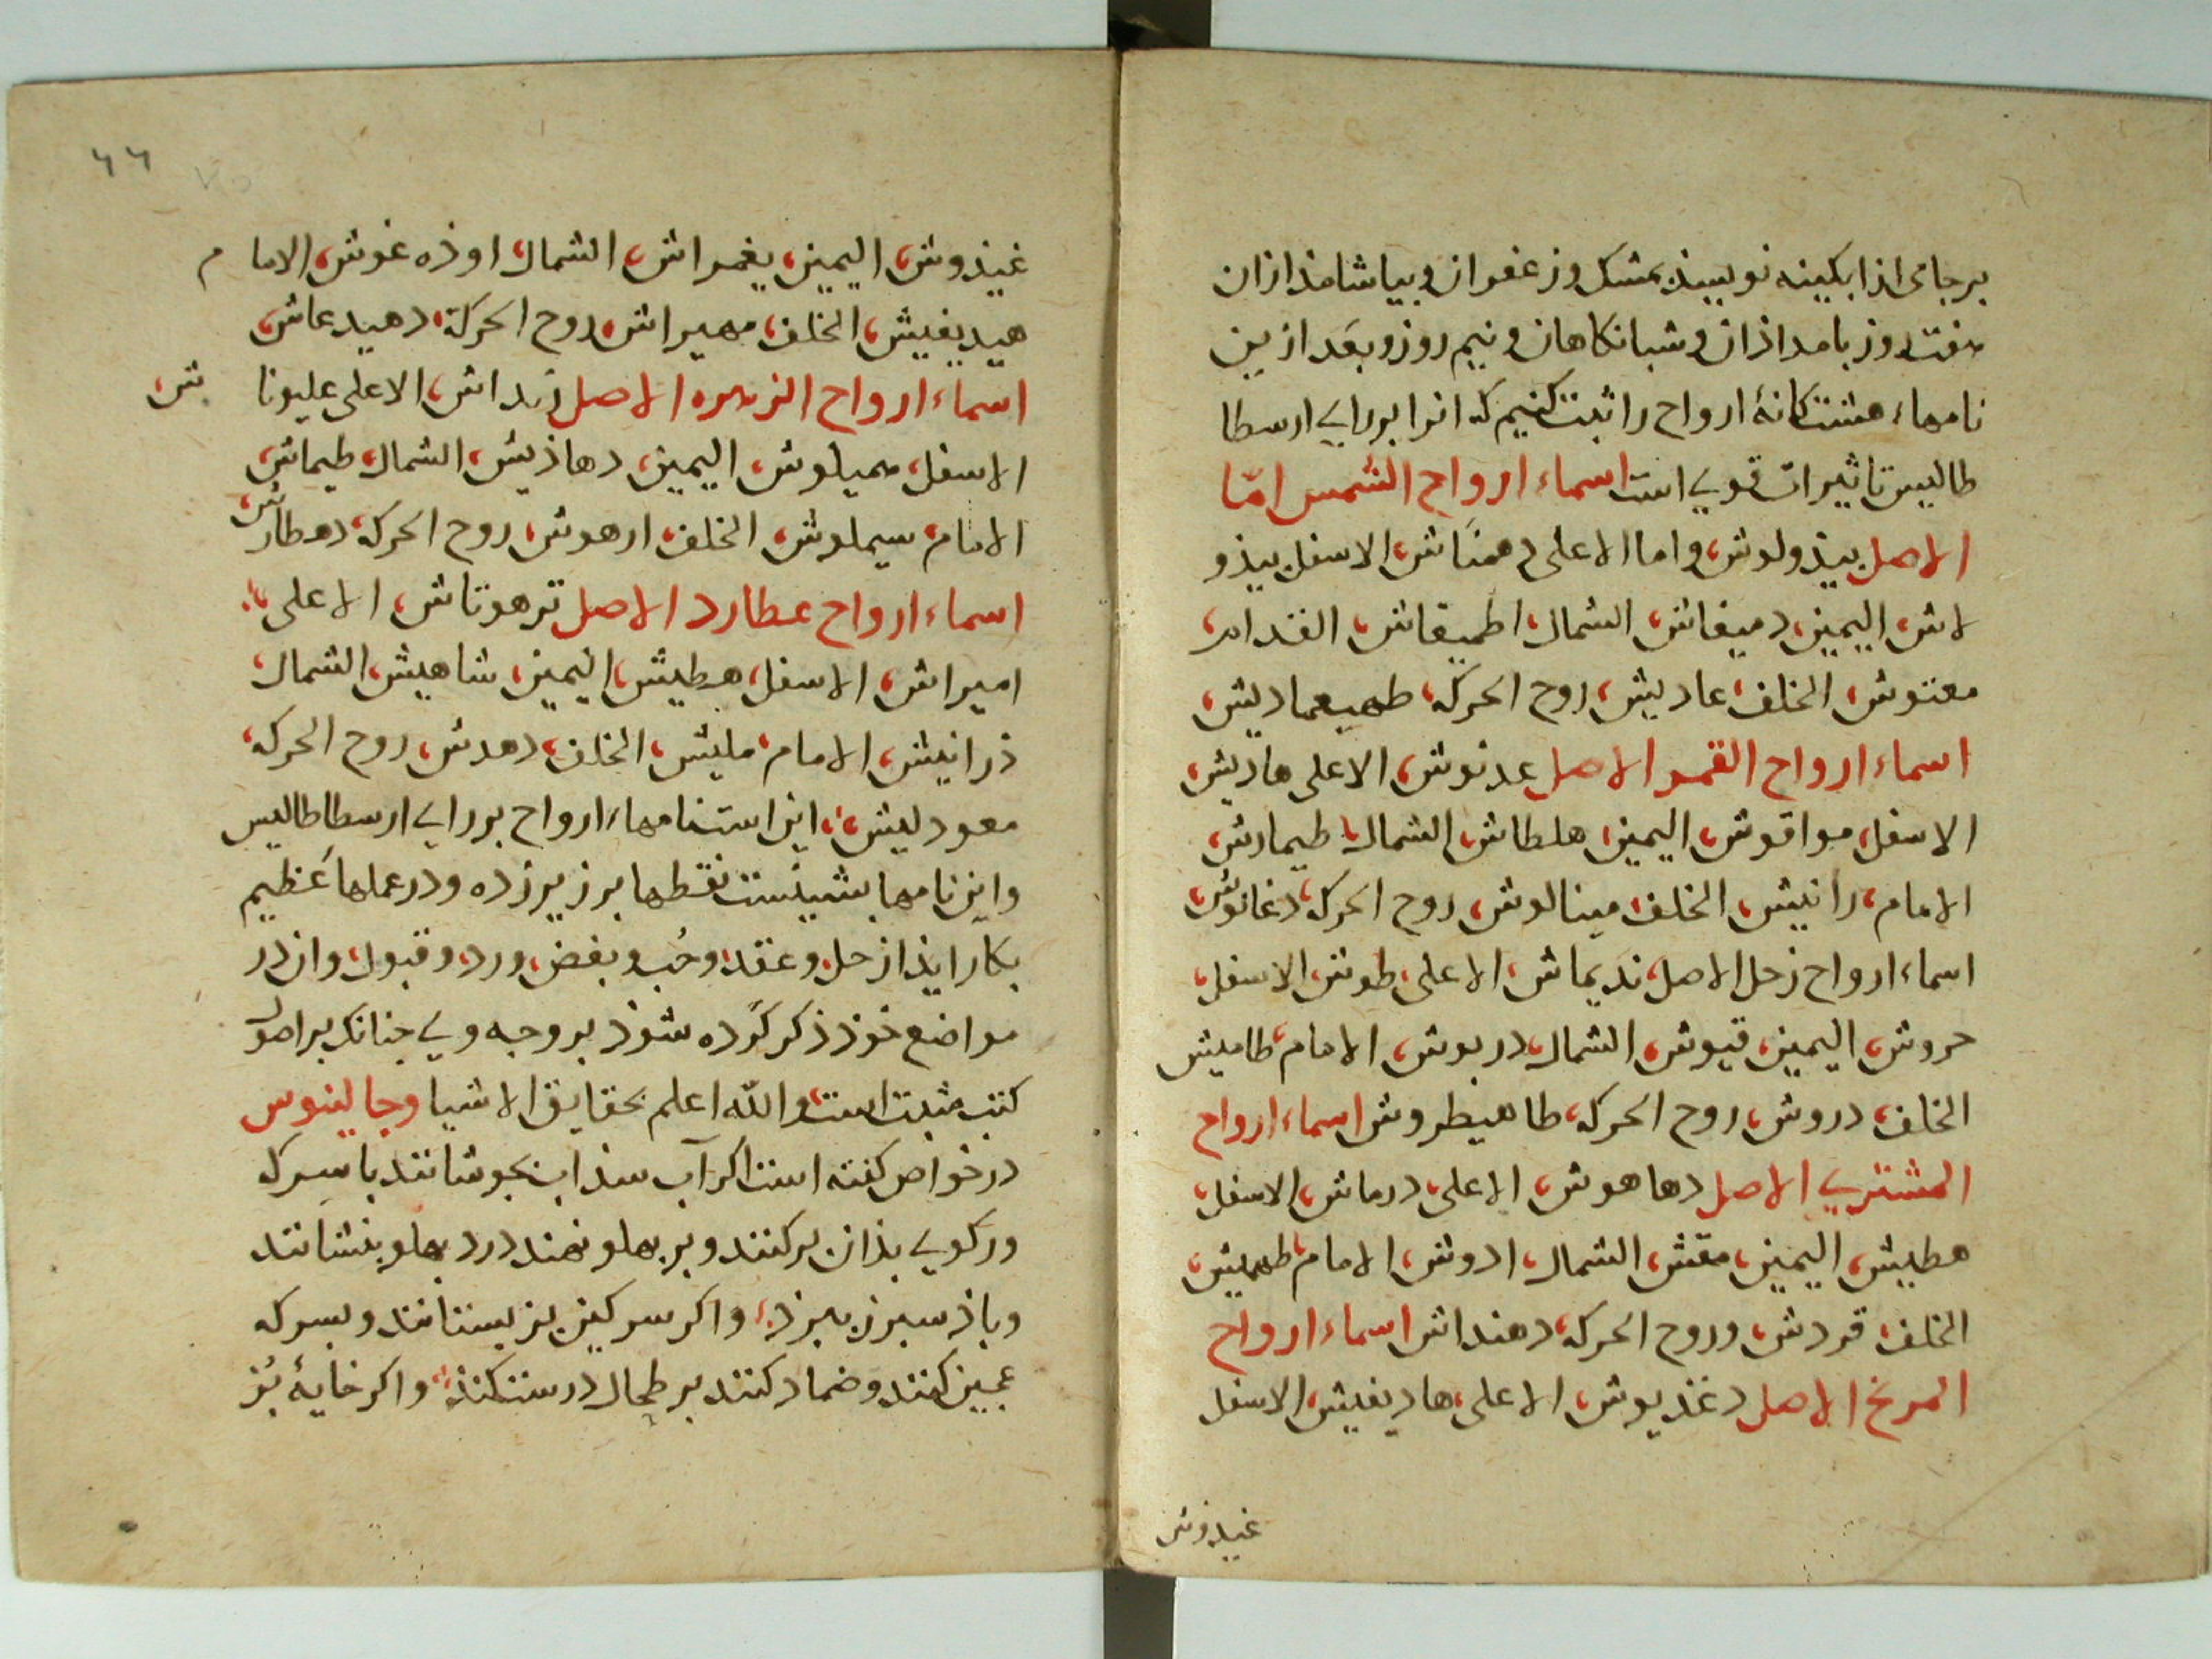 برجامی از ابکینه نویسند بمشک و زعفران و بیاشامند ازان
هفت روز بامداذان و شبانکاهان و نیم روز و بعد ازین
نامهاء هشتکانهٔ ارواح را ثبت کنیم که انرا بررای ارسطا
طالیس تاثیرات قوی است اسماء ارواح الشمس امّا
الاصل بیذولوش واما الاعلی دهمناش الاسفل بیذو
لاش الیمین دمیغاش الشمال اطمیغاش القدام
معنوش الخلف عادیش روح الحرکه طهیعمادیش
اسماء ارواح القمر الاصل عدنوش الاعلی هادیش
الاسفل مواقوش الیمین هلطاش الشمال طیمارش
الامام رانیش الخلف مینالوش روح الحرکه دغانوش
اسماء ارواح زحل الاصل ندیماش الاعلی طوش الاسفل
حروش الیمین قیوش الشمال دریوش الامام طامیش
الخلف دروش روح الحرکه طاهیطروش اسماء ارواح
المشتری الاصل دهاهوش الاعلی درماش الاسفل
هطیش الیمین مقش الشمال ادوش الامام طهمیش
الخلف قردش وروح الحرکه دهنداش اسماء ارواح
المریخ الاصل دغذیوش الاعلی هادیغیش الاسفل
غیدوش
٦٦
غیذوش الیمین یغمراش الشمال اوذه غوش الامام
هیدیغیش الخلف مهیراش روح الحرکة دهیدعاش
اسماء ارواح الزهره الاصل زنداش الاعلی علیونا ش
الاسفل همیلوش الیمین دهاذیش الشمال طیماش
الامام سیملوش الخلف ارهوش روح الحرکه دهطارش
اسماء ارواح عطارد الاصل ترهوتاش الاعلی
امیراش الاسفل هطیش الیمین شاهیش الشمال
ذرانیش الامام ملیش الخلف دهدش روح الحرکه
معودلیش این است نامهاء ارواح بررای ارسطاطالیس
واین نامها بشینست نقطها برزیر زده ودر عملها عظیم
بکار ایذ از حل و عقد و حُب و بغض ورد و قبول وان در
مواضع خوذ ذکر کرده شوذ بر وجه وی جنانک بر اصول
کتب مثبت است والله اعلم بحقایق الاشیا وجالینوس
در خواص کفته است اکر آب سذاب بجوشانند باسرکه
ورکویی بذان برکنند و بر بهلو نهند درد بهلو بنشانند
وباذ سبرز ببرذ واکر سرکین بز بستانند و بسرکه
عجین کنند و ضماد کنند بر طحال درست کنذ واکر خایهٔ بُز